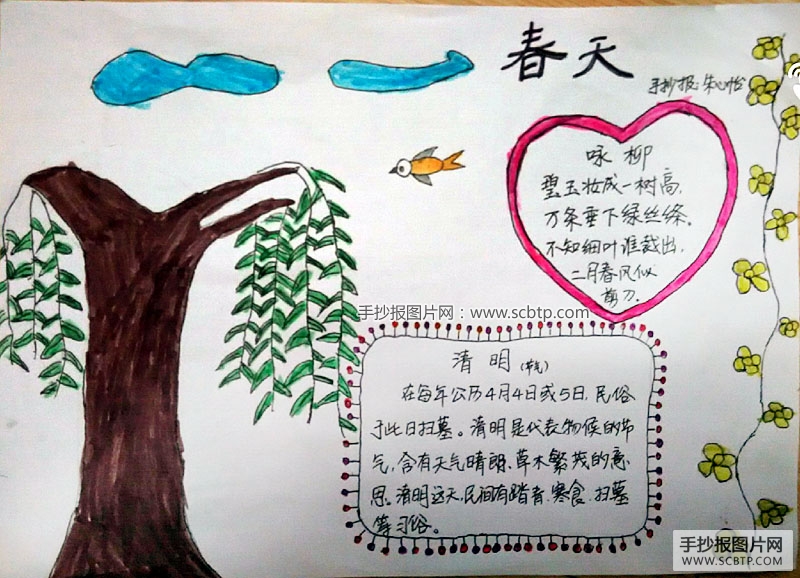 春天
手抄报:朱心怡
咏柳
碧玉妆成一树高,
万条垂下绿丝绦。
不知细叶谁裁出,
二月春风似
剪刀.
手抄报图片网：www.scbtp.com
清明(节气)
在每年公历4月4日或5日,民俗
于此日扫墓。清明是代表物候的节
气,含有天气晴朗、草木繁茂的意
思。清明这天,民间有踏青、寒食、扫墓
等习俗。
手抄报图片网
WWW.SCBTP.COM